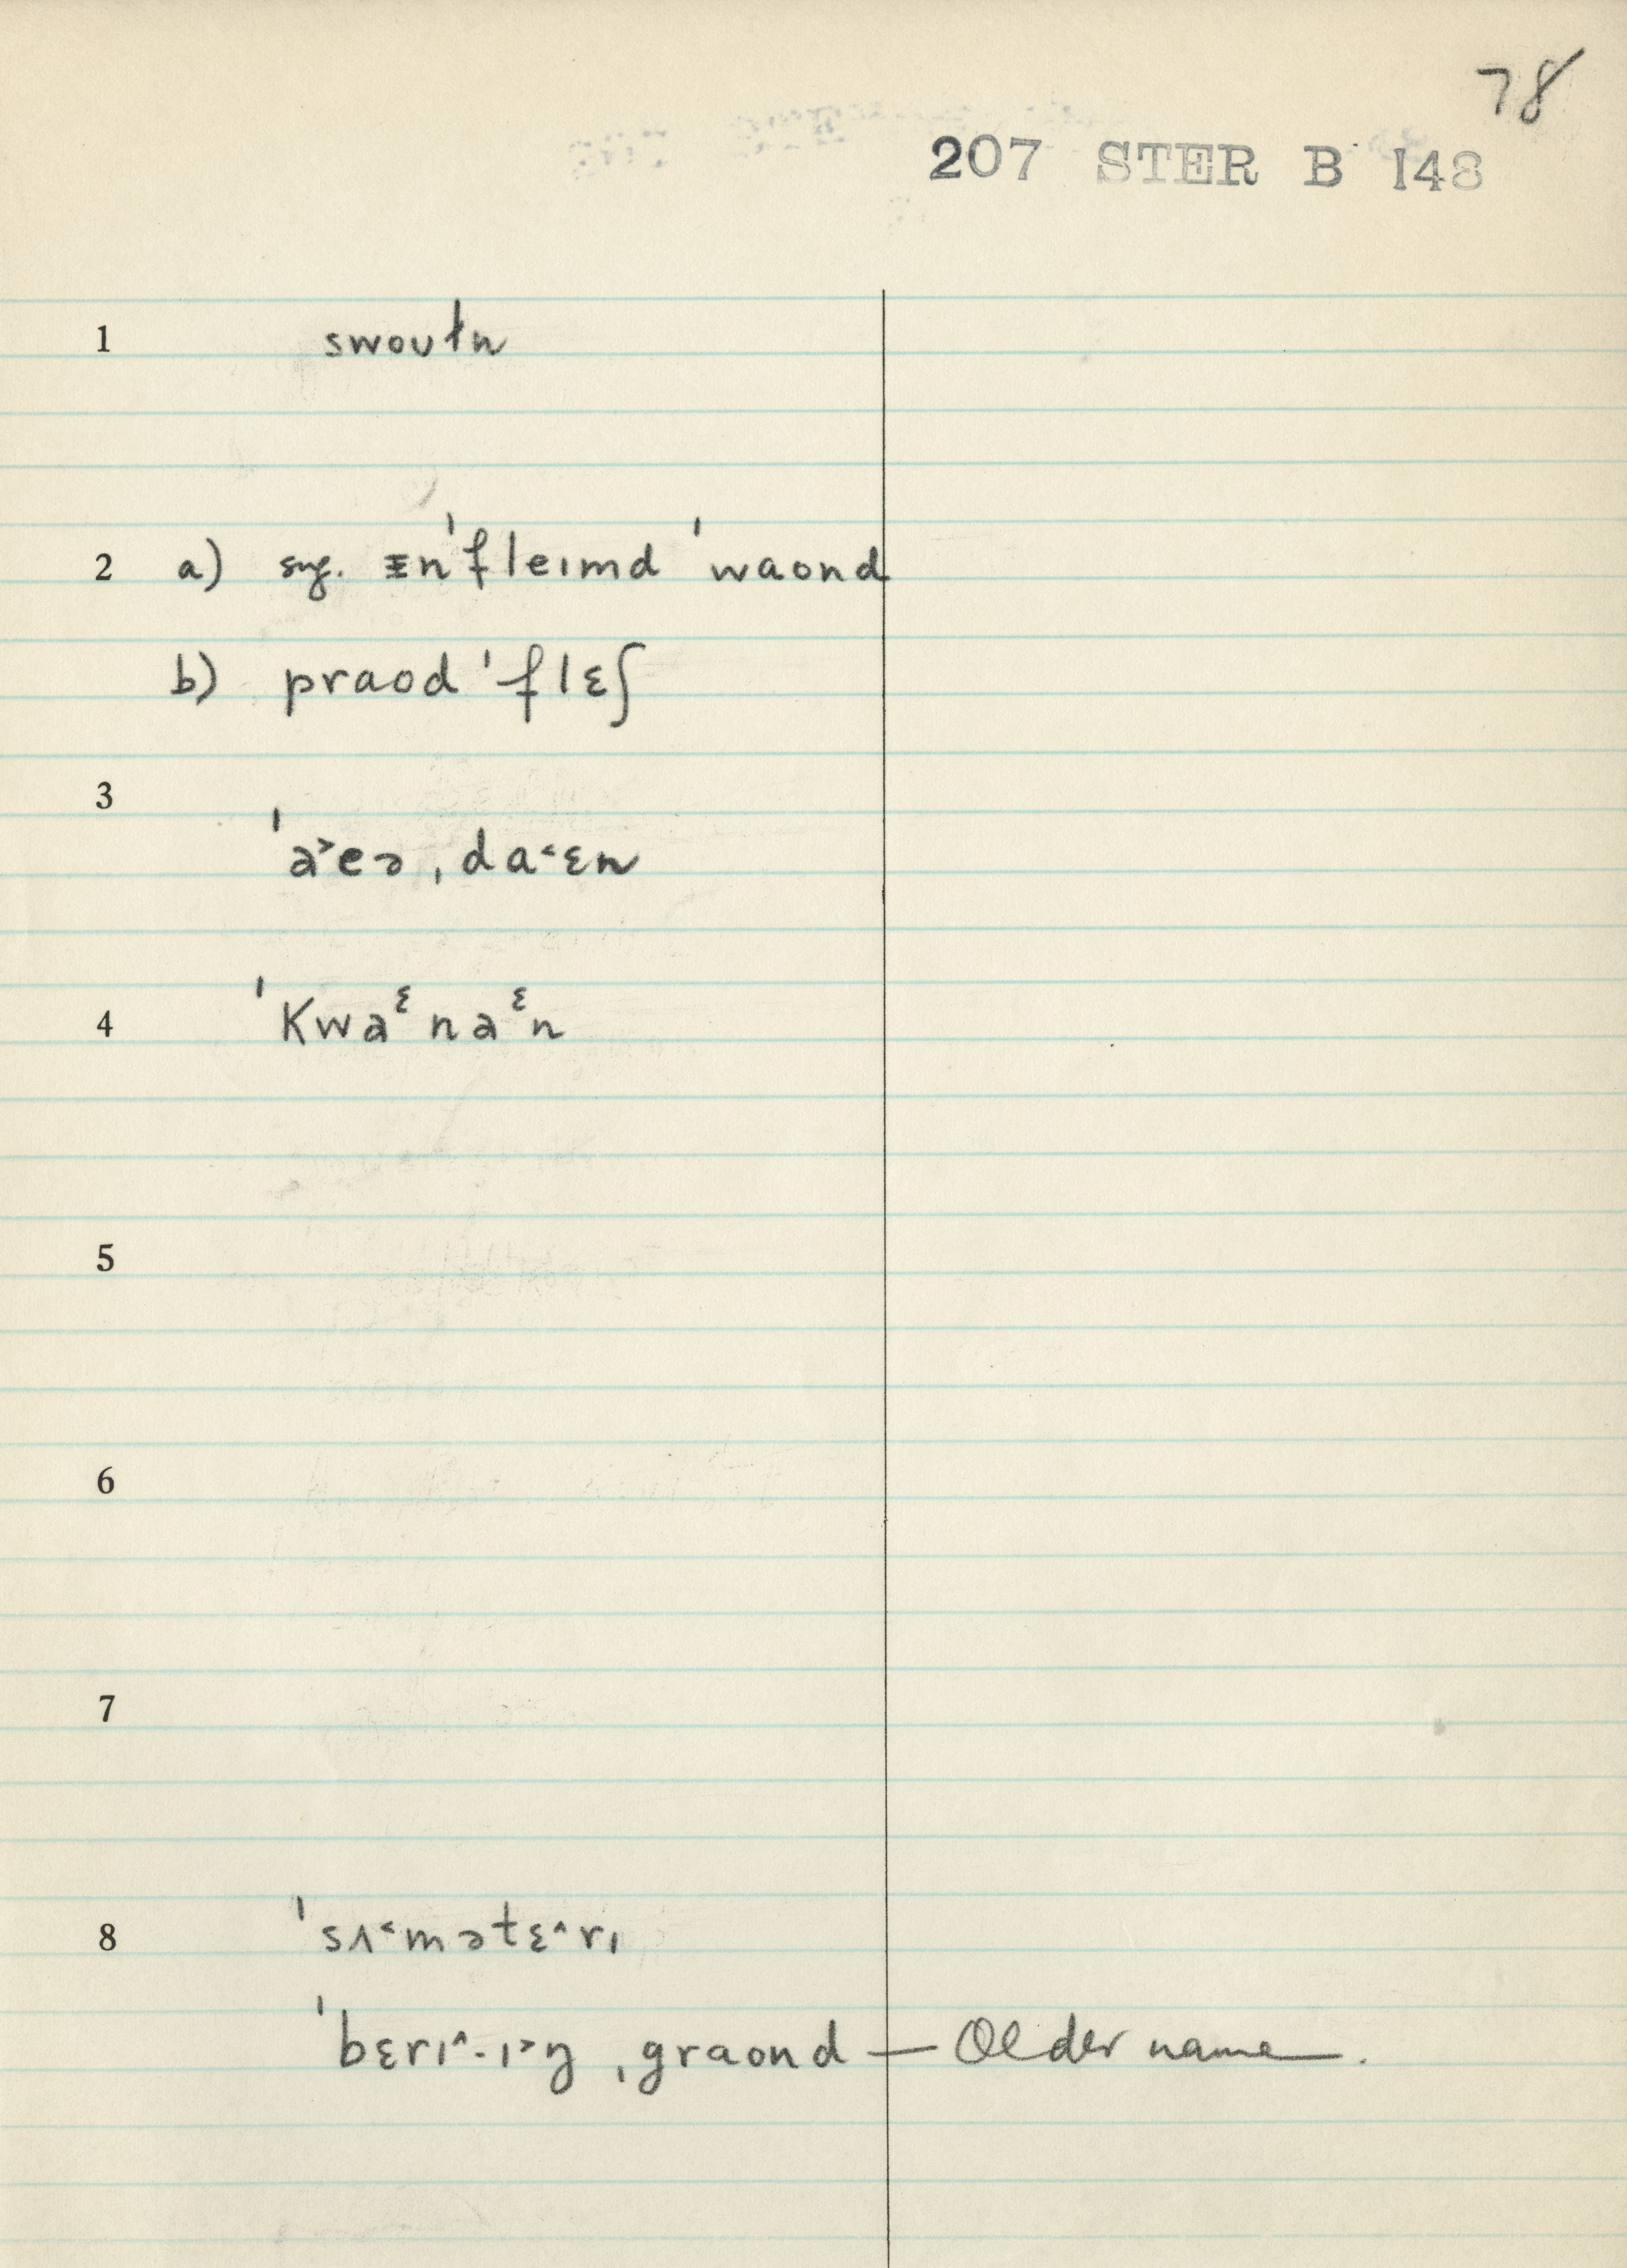 78
207 STER B 148
1 swoułn
2 a) sug. ɪn'fleɪmd 'waond
b) praod 'flɛʃ
3
'a˃eə ˌda˂ɛn
4 'kwaᵋnaᵋn
5
6
7
8 'sʌ˂mətɛ˄rɪ
'bɛrɪ˄-ɪ˃ŋ ˌgraond — Older name.